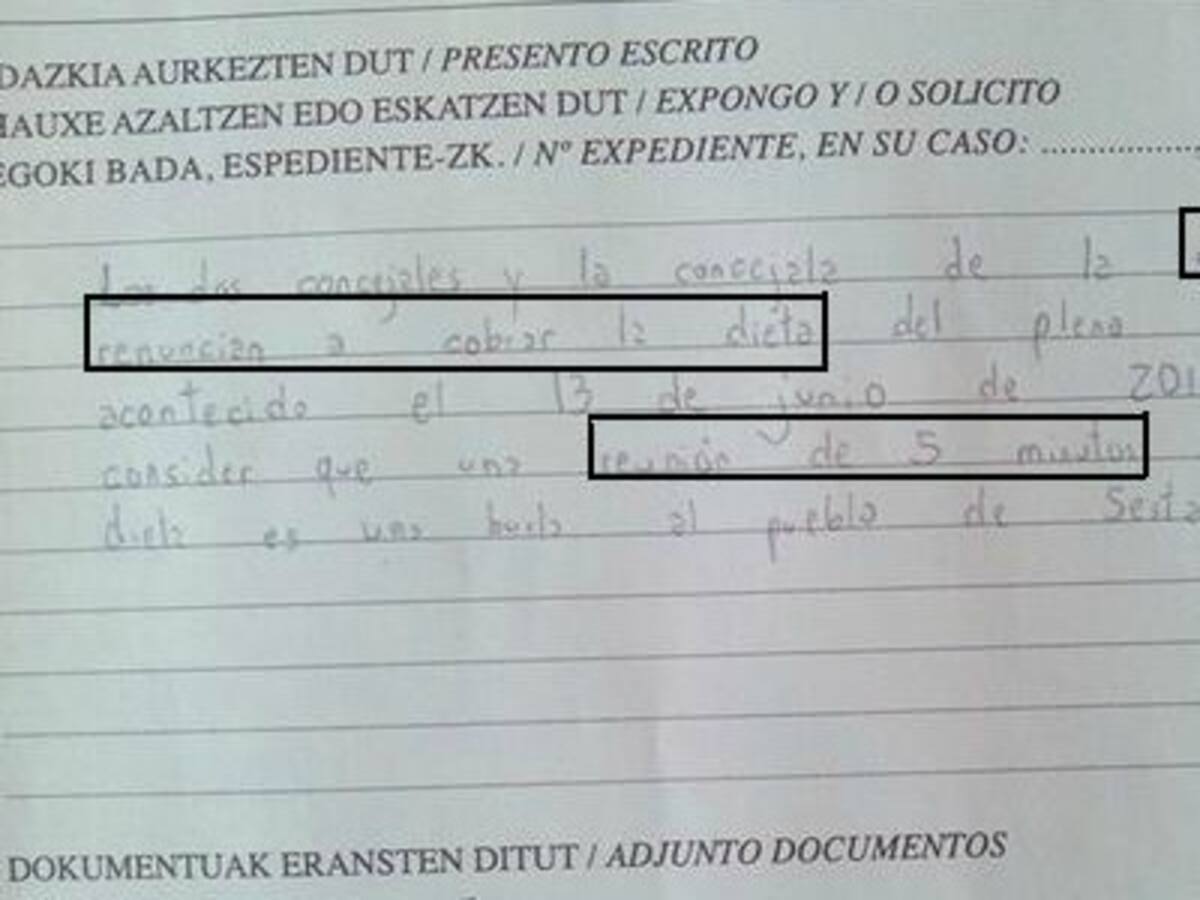 DAZKIA AURKEZTEN DUT / PRESENTO ESCRITO
HAUXE AZALTZEN EDO ESKATZEN DUT / EXPONGO Y / O SOLICITO
EGOKI BADA, ESPEDIENTE-ZK. / Nº EXPEDIENTE, EN SU CASO: ................
Los dos concejales y la concejala de la
renuncian a cobrar la dieta del pleno
acontecido el 13 de junio de 201
consider que una reunión de 5 minutos
dieta es una burla al pueblo de Sesta
DOKUMENTUAK ERANSTEN DITUT / ADJUNTO DOCUMENTOS